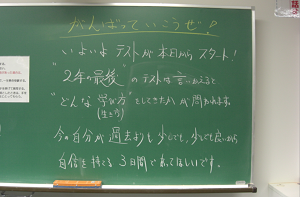 がんばっていこうぜ!
いよいよ テストが本日から スタート!
"2年の最後" のテストは言いかえると
"どんな 学び方 をしてきたか"が問われます。
(生き方)
今の自分が 過去よりも 少しでも、少しでも良いから
自信を持てる 3日間であってほしいです。